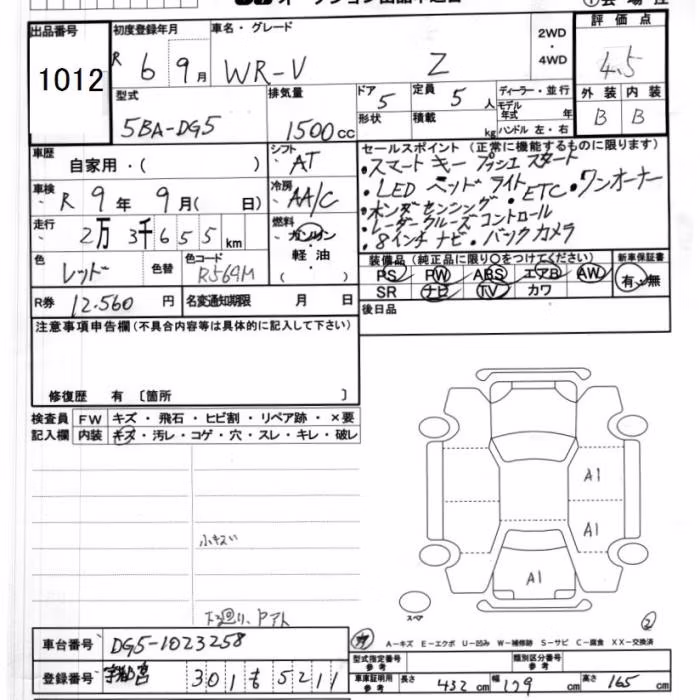 出品番号 1012
初度登録年月 R 6 9月
車名・グレード WR-V Z
2WD・4WD
評価点 4.5
型式 5BA-DG5
排気量 1500cc
ドア 5
形状
定員 5人
積載 kg
ディーラー・並行
モデル年式 年
ハンドル 左・右
外装 内装
B B
車歴 自家用・( )
シフト AT
車検 R 9年 9月( 日)
冷房 AA/C
走行 2万 3千 6 5 5 km
燃料 ガソリン
軽・油
( )
色 レッド 色替
色コード R564M
R券 12.560 円
名変通知期限 月 日
セールスポイント(正常に機能するものに限ります)
・スマートキー プッシュスタート
・LED ヘッドライト ・ETC ・ワンオーナー
・ホンダセンシング
・レーダークルーズコントロール
・8インチナビ・バックカメラ
装備品(純正品に限り○をつけてください)
PS PW ABS エアB AW
SR ナビ TV カワ
新車保証書
有・無
後日品
注意事項申告欄(不具合内容等は具体的に記入して下さい)
修復歴 有 〔箇所 〕
検査員 FW キズ・飛石・ヒビ割・リペア跡・×要
記入欄 内装 キズ・汚レ・コゲ・穴・スレ・キレ・破レ
A1
A1
A1
スペア
②
下廻り、
A-キズ E-エクボ U-凹み W-補修跡 S-サビ C-腐食 XX-交換済
車台番号 DG5-1023258
型式指定番号 参考
類別区分番号 参考
登録番号 宇都宮 301 も 5211
車庫証明用 参考 長さ 432 cm 幅 179 cm 高さ 165 cm